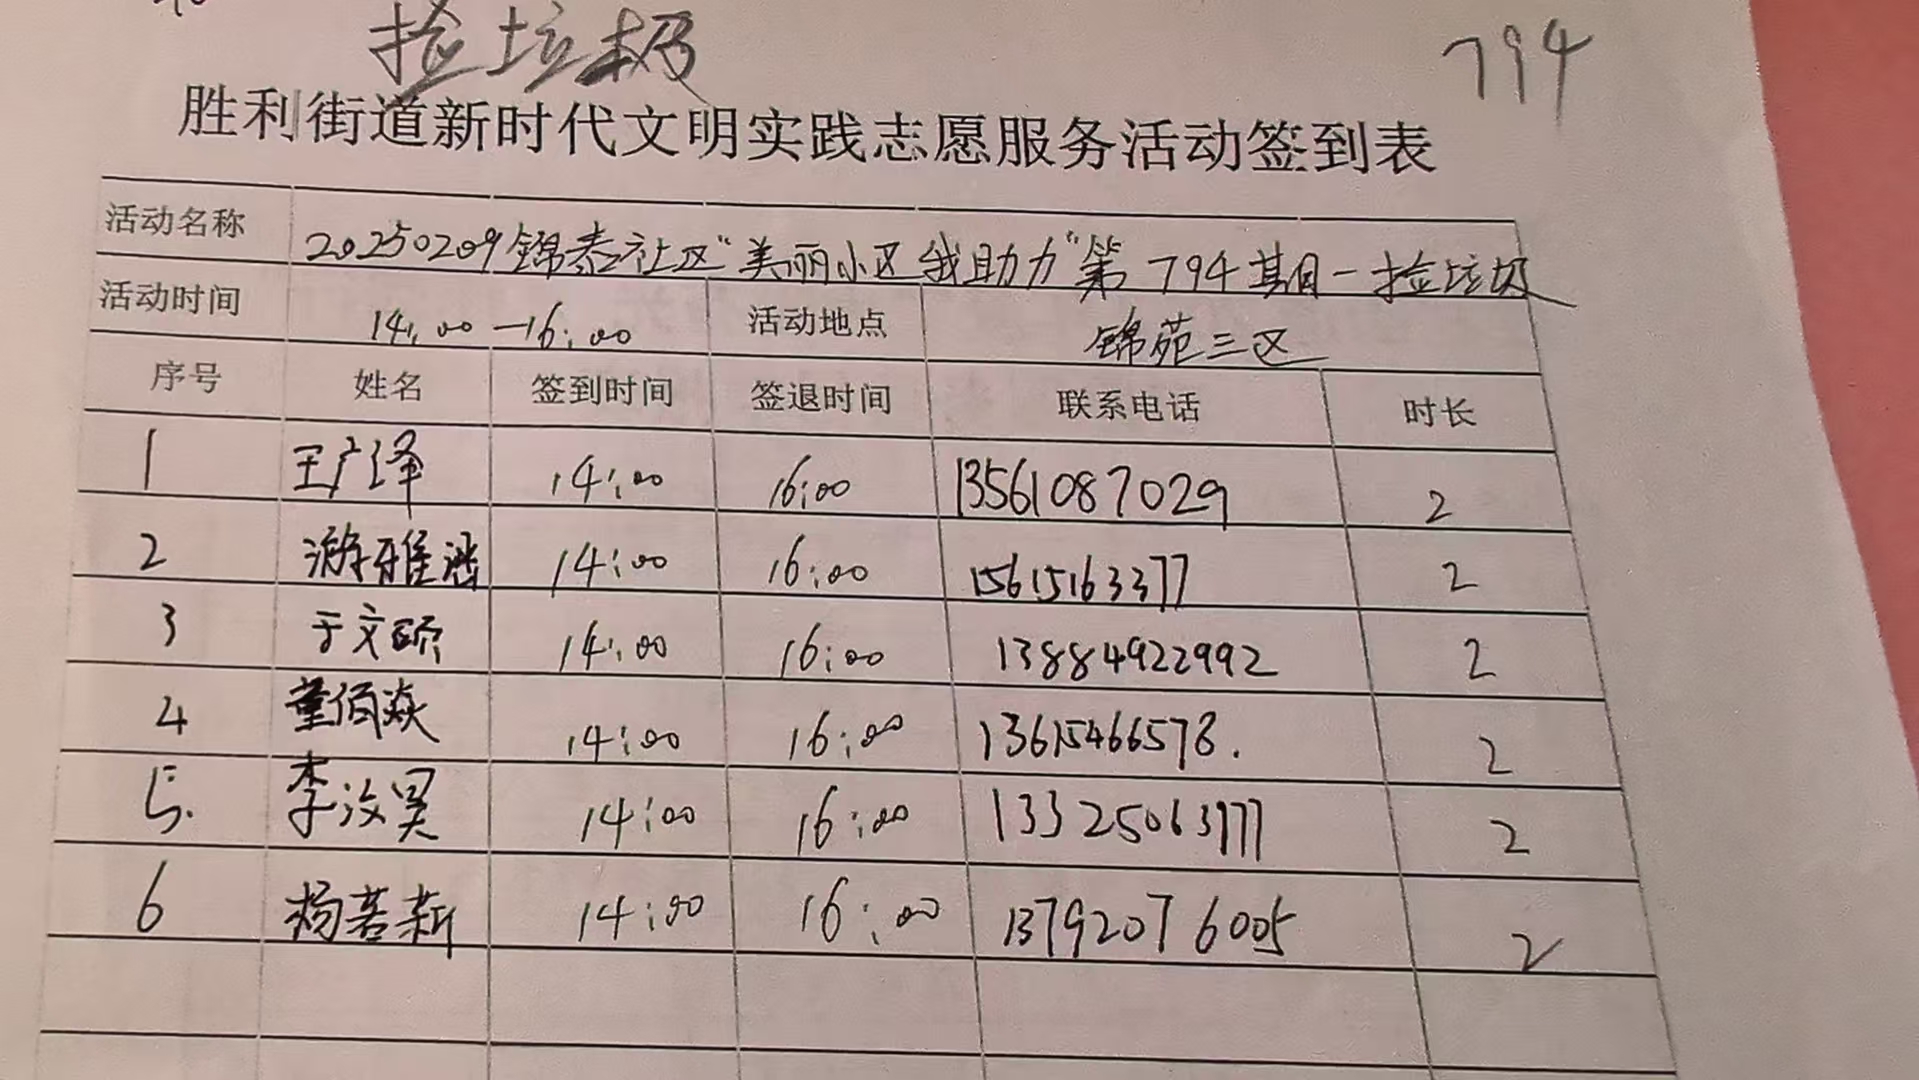 捡垃圾
794
胜利街道新时代文明实践志愿服务活动签到表
活动名称 20250209锦泰社区"美丽小区我助力"第794期一捡垃圾
活动时间 14:00—16:00 活动地点 锦苑三区
序号 姓名 签到时间 签退时间 联系电话 时长
1 王广泽 14:00 16:00 13561087029 2
2 游雅涵 14:00 16:00 15615163377 2
3 于文硕 14:00 16:00 13884922992 2
4 董佰焱 14:00 16:00 13615466578. 2
5. 李汶昊 14:00 16:00 13325063777 2
6 杨若新 14:00 16:00 13792076005 2